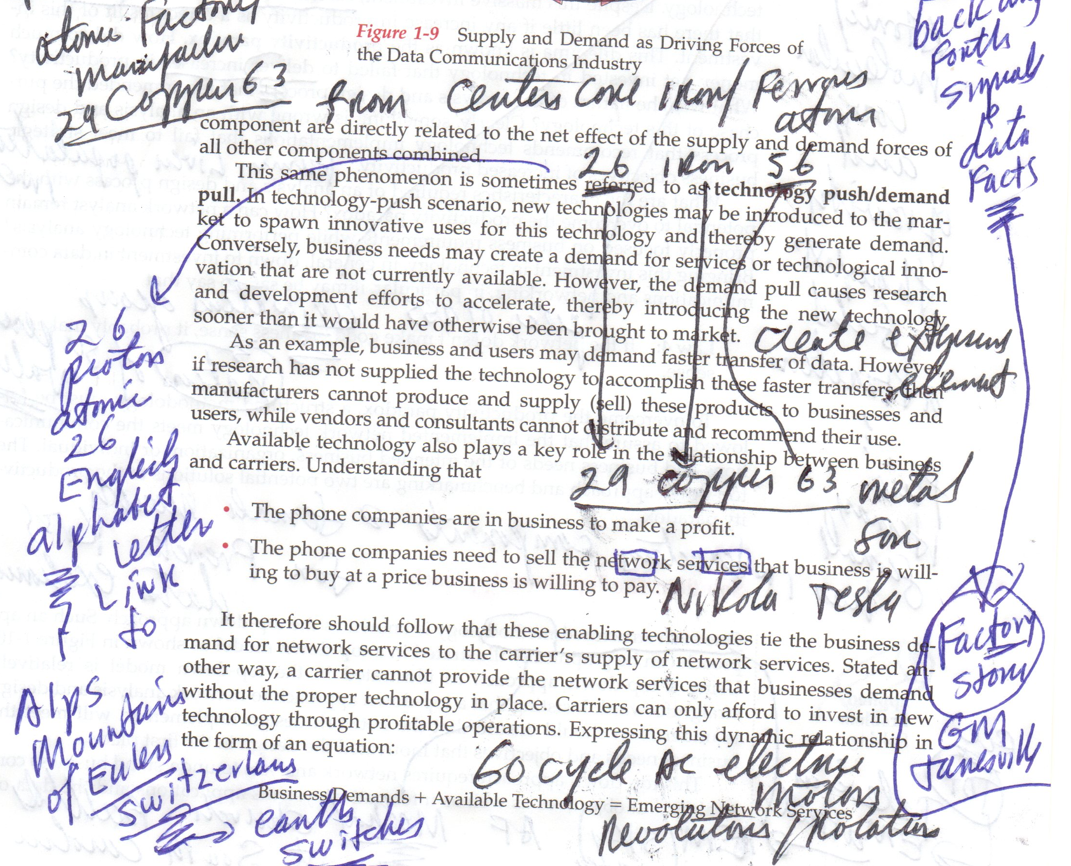 atomic Factory
manufacture
29 Copper 63 from Centers Core Iron/Ferrous
atom
back and
forth
signal
&
data
Facts
Figure 1-9 Supply and Demand as Driving Forces of
the Data Communications Industry
component are directly related to the net effect of the supply and demand forces of
all other components combined.
26 iron 56
This same phenomenon is sometimes referred to as technology push/demand
pull. In technology-push scenario, new technologies may be introduced to the mar-
ket to spawn innovative uses for this technology and thereby generate demand.
Conversely, business needs may create a demand for services or technological inno-
vation that are not currently available. However, the demand pull causes research
and development efforts to accelerate, thereby introducing the new technology
sooner than it would have otherwise been brought to market.
Create
element
As an example, business and users may demand faster transfer of data. However,
if research has not supplied the technology to accomplish these faster transfers, then
manufacturers cannot produce and supply (sell) these products to businesses and
users, while vendors and consultants cannot distribute and recommend their use.
Available technology also plays a key role in the relationship between business
and carriers. Understanding that
29 copper 63 metal
• The phone companies are in business to make a profit.
• The phone companies need to sell the network services that business is will-
ing to buy at a price business is willing to pay.
Nikola Tesla
26
proton
atomic
26
English
alphabet
Letter
Link
to
Alps
Mountains
of Eulers
Switzerland
earth
switches
Factory
story
GM
Janesville
It therefore should follow that these enabling technologies tie the business de-
mand for network services to the carrier's supply of network services. Stated an-
other way, a carrier cannot provide the network services that businesses demand
without the proper technology in place. Carriers can only afford to invest in new
technology through profitable operations. Expressing this dynamic relationship in
the form of an equation:
60 cycle AC electric
motors
Business Demands + Available Technology = Emerging Network Services
Revolutions/rotations